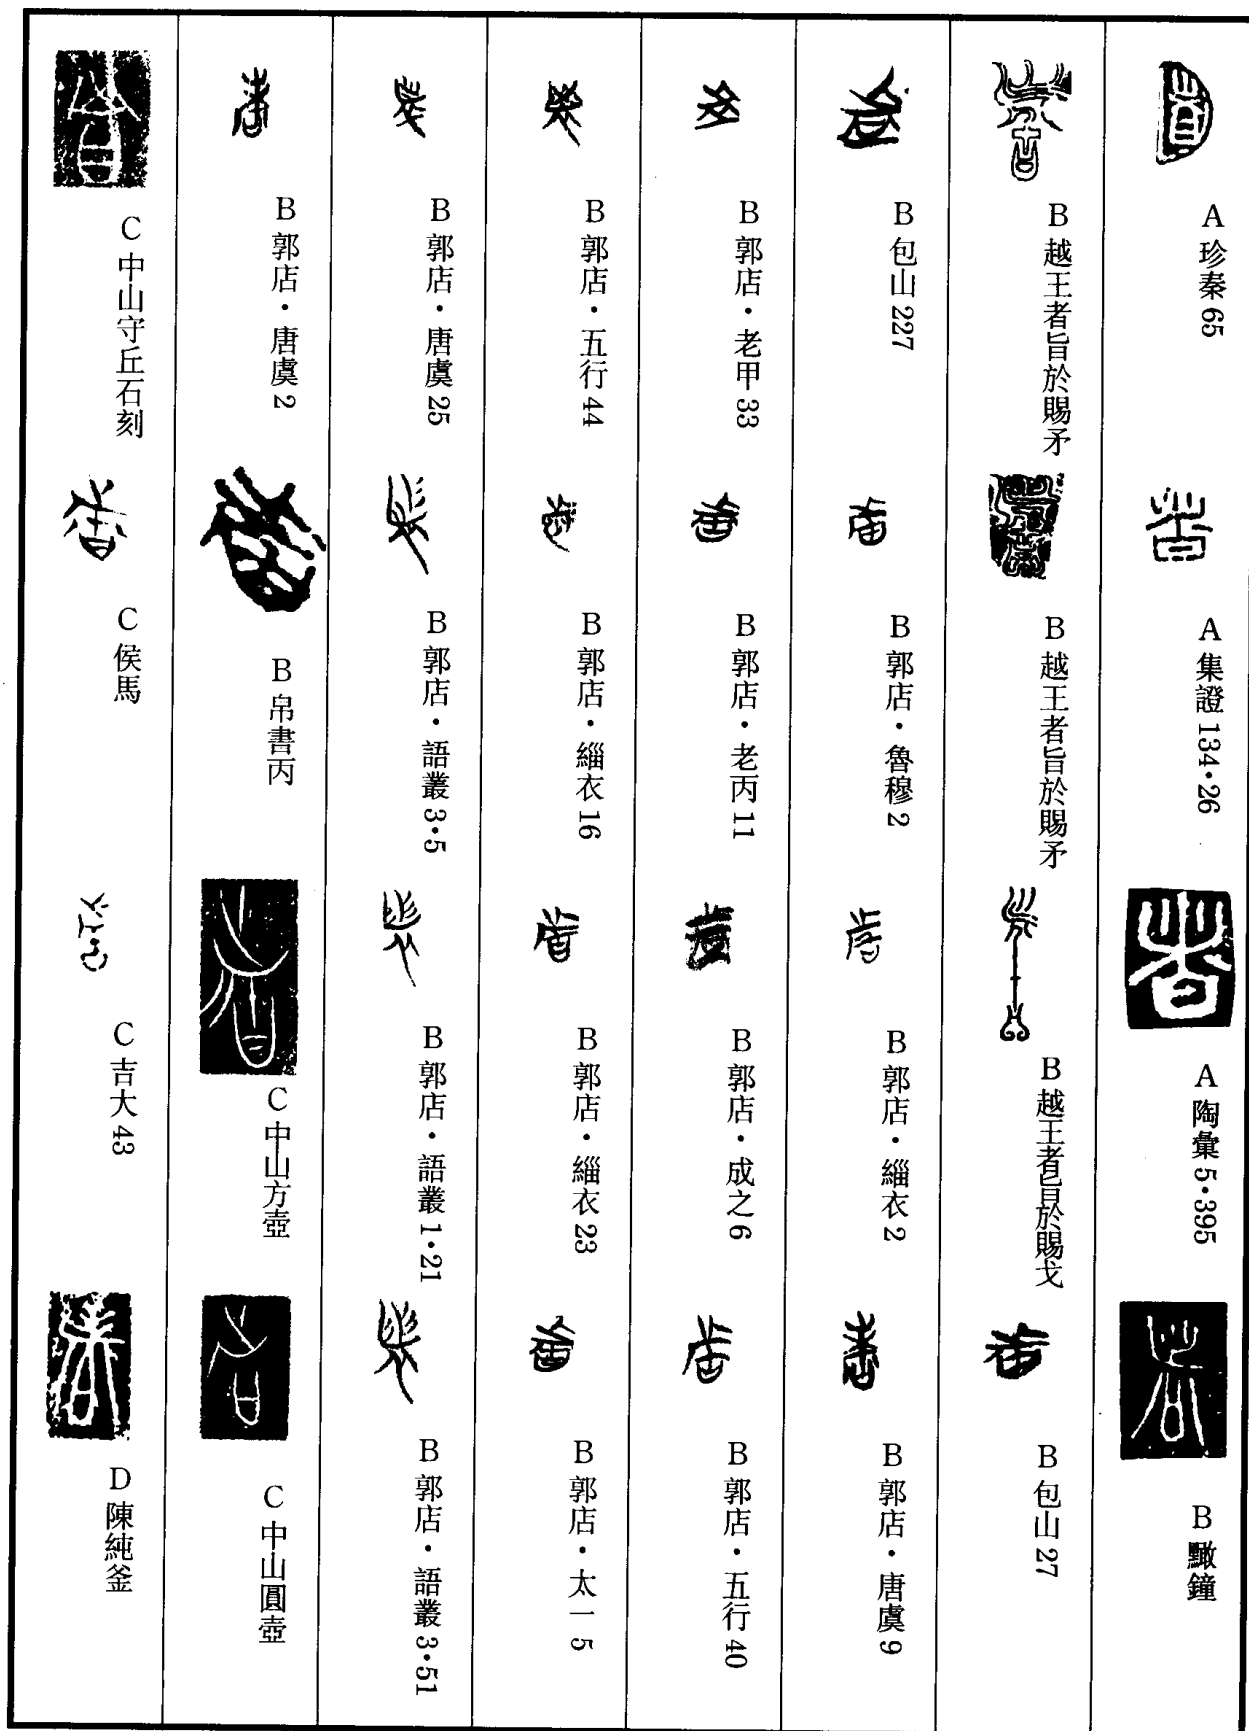 A 珍秦 65
A 集證 134·26
A 陶彙 5·395
B 鐘
B 越王者旨於賜矛
B 越王者旨於賜矛
B 越王者旨於賜戈
B 包山 27
B 包山 227
B 郭店·魯穆 2
B 郭店·緇衣 2
B 郭店·唐虞 9
B 郭店·老甲 33
B 郭店·老丙 11
B 郭店·成之 6
B 郭店·五行 40
B 郭店·五行 44
B 郭店·緇衣 16
B 郭店·緇衣 23
B 郭店·太一 5
B 郭店·唐虞 25
B 郭店·語叢 3·5
B 郭店·語叢 1·21
B 郭店·語叢 3·51
B 郭店·唐虞 2
B 帛書丙
C 中山方壺
C 中山圓壺
C 中山守丘石刻
C 侯馬
C 吉大 43
D 陳純釜